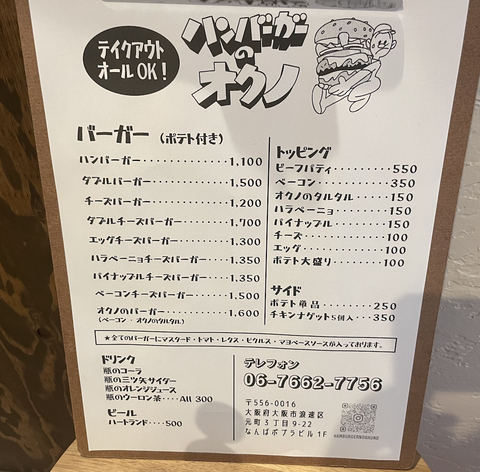 テイクアウト
オールOK!
ハンバーガー
の
オクノ
バーガー (ポテト付き)
ハンバーガー············1,100
ダブルバーガー············1,500
チーズバーガー············1,200
ダブルチーズバーガー······1,700
エッグチーズバーガー······1,300
ハラペーニョチーズバーガー····1,350
パイナップルチーズバーガー····1,350
ベーコンチーズバーガー······1,500
オクノのバーガー·········1,600
(ベーコン・オクノのタルタル)
トッピング
ビーフパティ·········550
ベーコン············350
オクノのタルタル······150
ハラペーニョ·········150
パイナップル·········150
チーズ············100
エッグ············100
ポテト大盛り·········100
サイド
ポテト単品·········250
チキンナゲット5個入···350
★全てのバーガーにマスタード・トマト・レタス・ピクルス・マヨベースソースが入っております。
ドリンク
瓶のコーラ
瓶の三ツ矢サイダー
瓶のオレンジジュース
瓶のウーロン茶····All 300
ビール
ハートランド····500
テレフォン
06-7662-7756
〒556-0016
大阪府大阪市浪速区
元町3丁目9-22
なんばポプラビル1F
HAMBURGERNOOKUNO